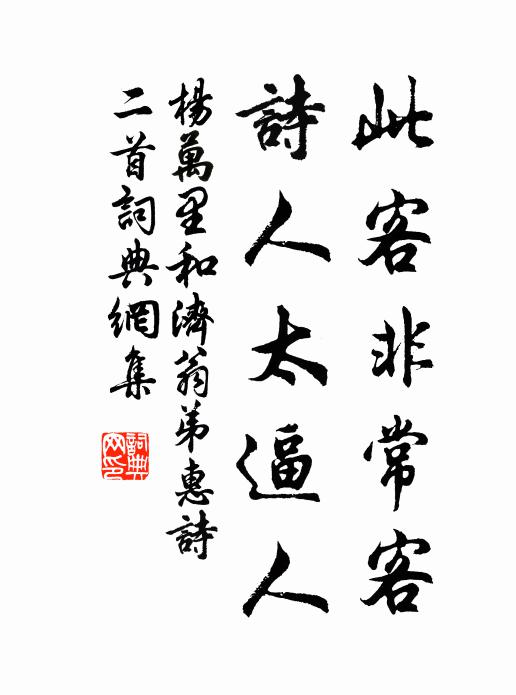 此客非常客
詩人太逼人
楊萬里和濟翁弟惠詩
二首詞典網集
詞典
网印